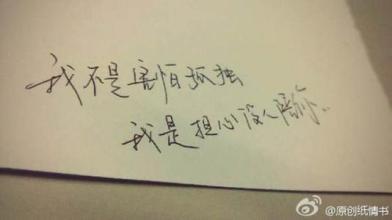 我不是害怕孤独
我是担心没人陪你..
@原创纸情书